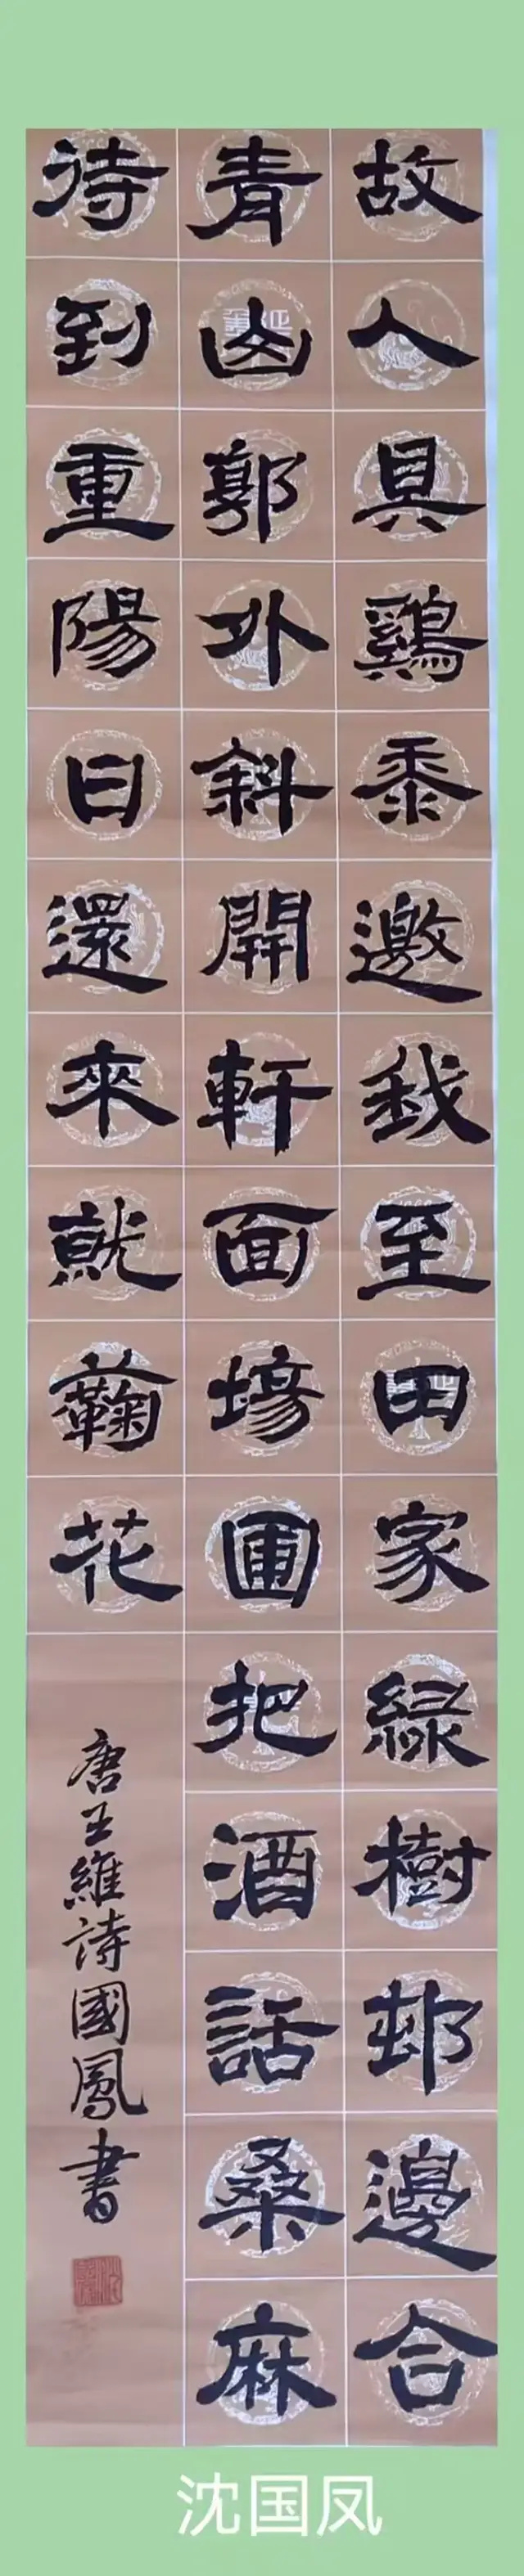 故人具鷄黍邀我至田家綠樹邨邊合
青山郭外斜開軒面場圃把酒話桑麻
待到重陽日還來就鞠花
唐王維詩國鳳書
沈国凤